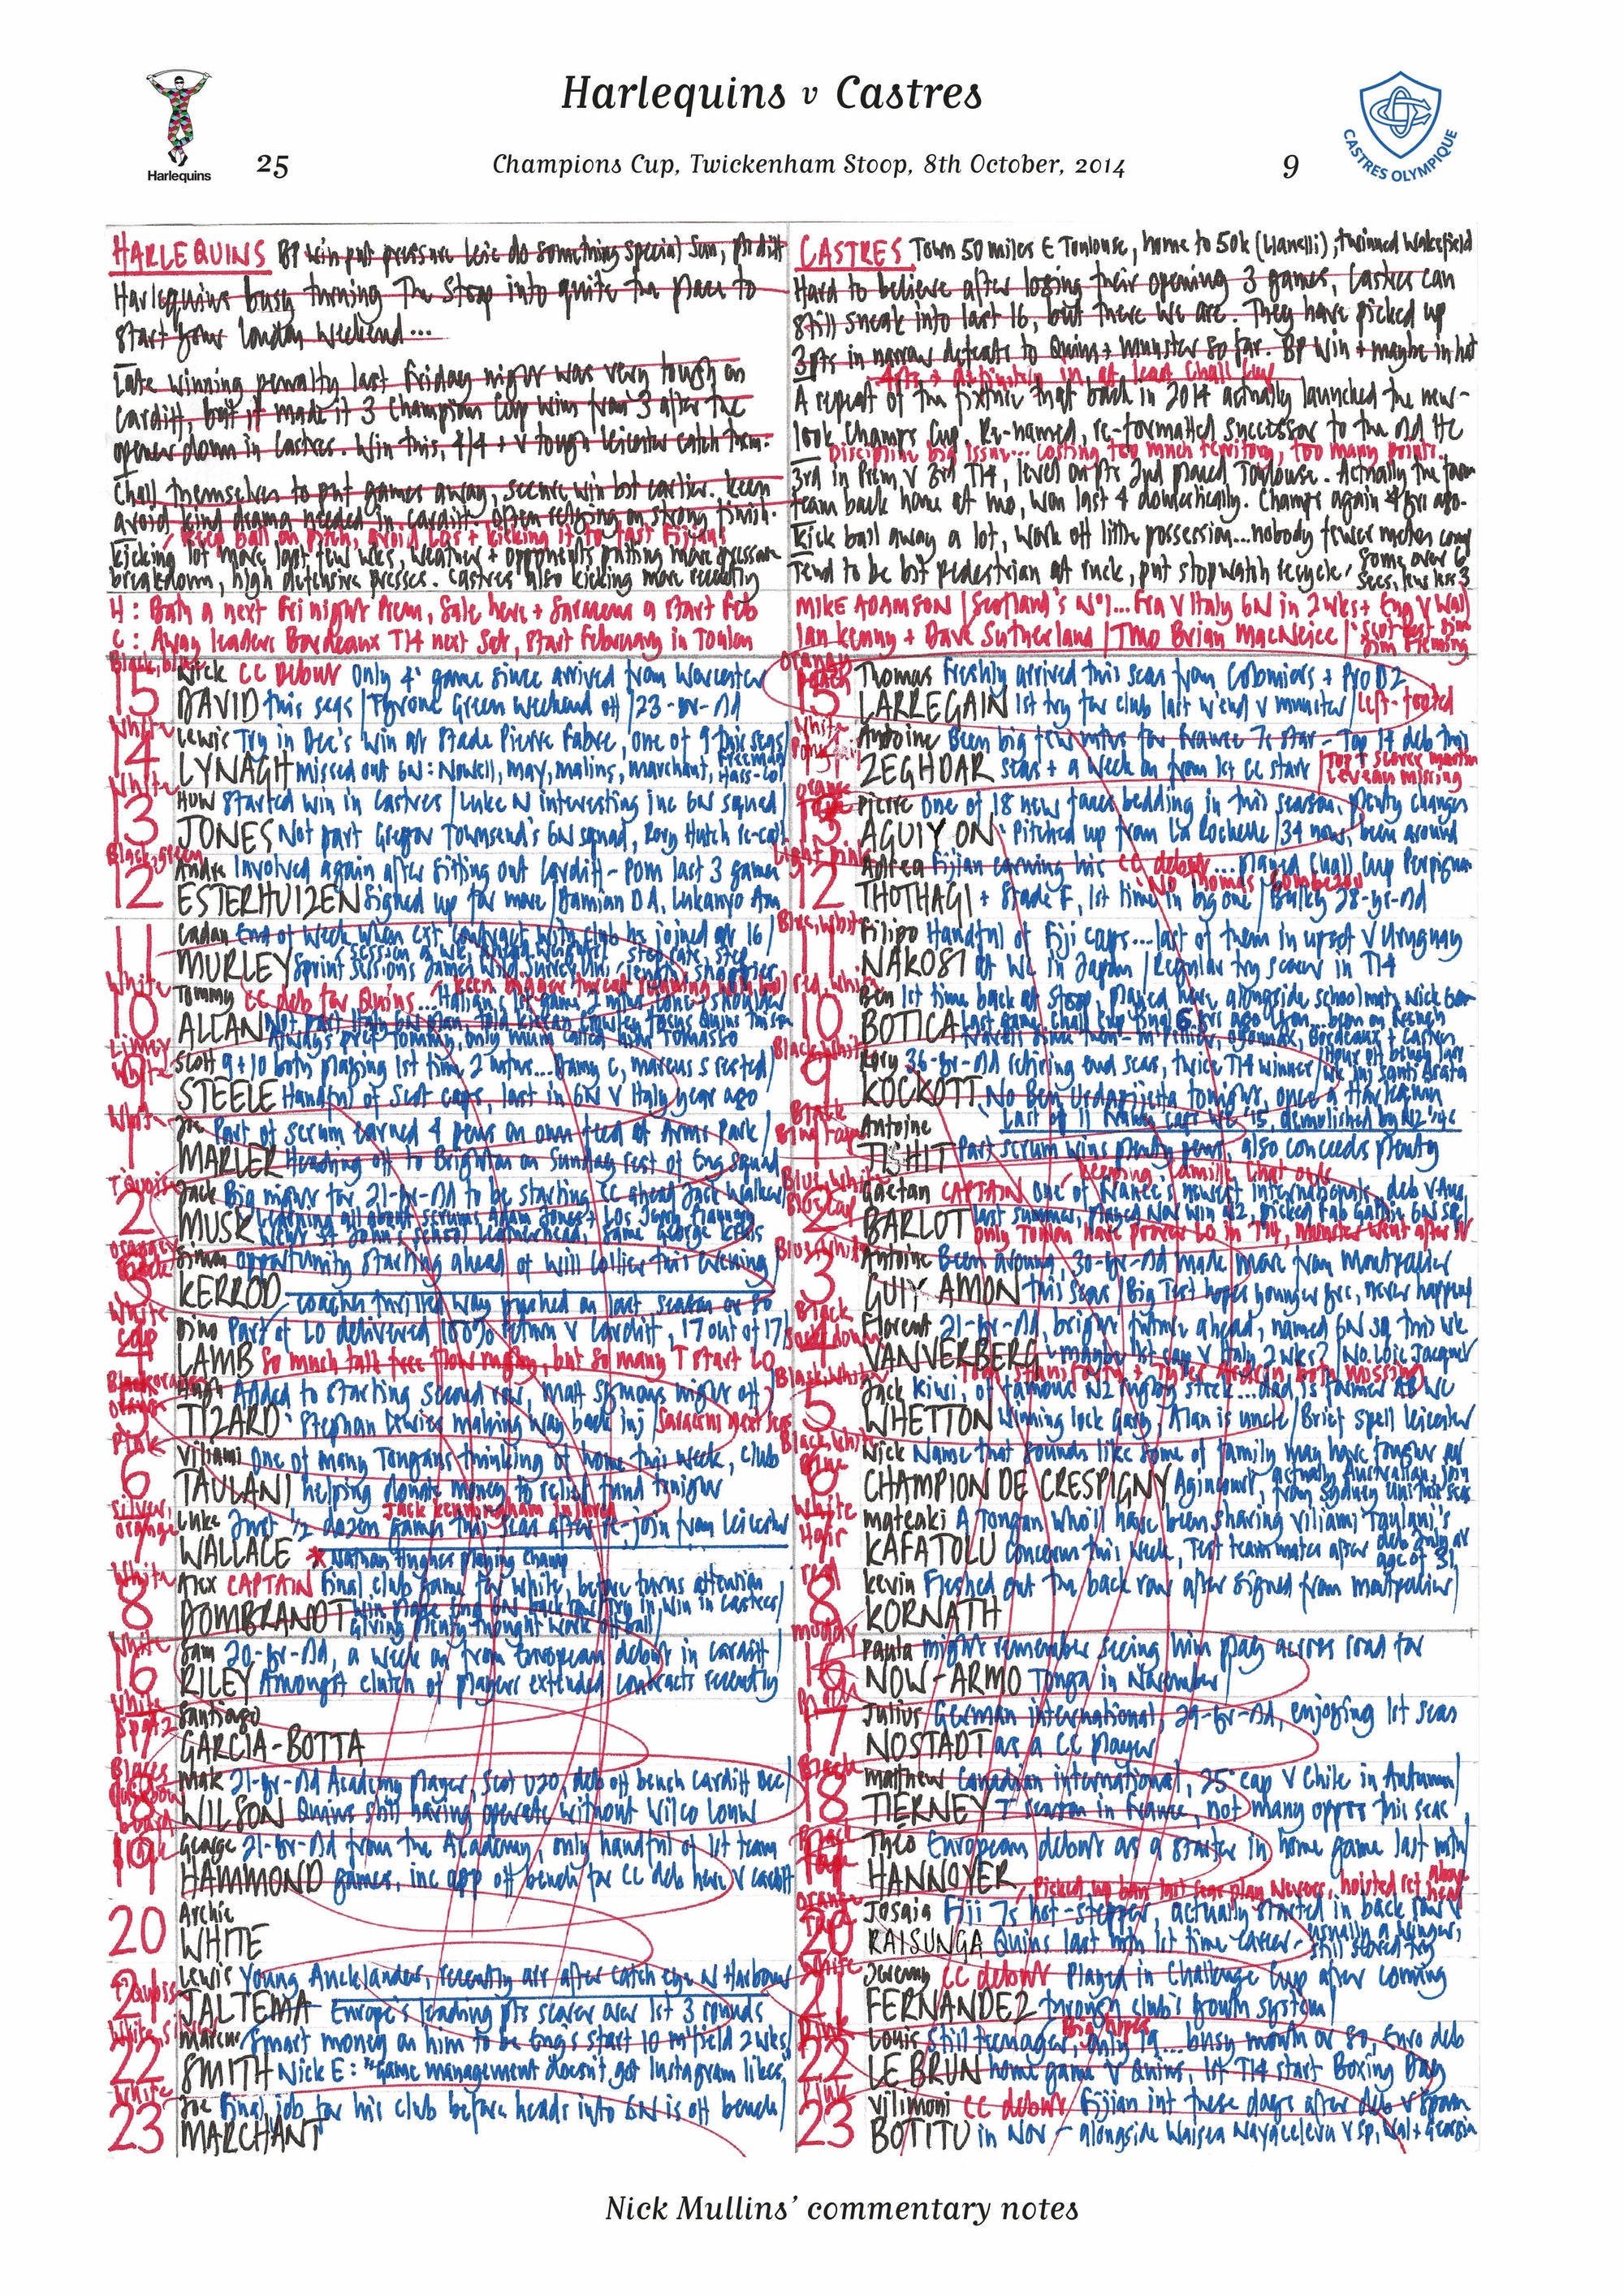 Harlequins v Castres
Harlequins
25
Champions Cup, Twickenham Stoop, 8th October, 2014
9
CASTRES OLYMPIQUE
HARLEQUINS BP win put pressure Leic do something special Sun,
Harlequins busy turning The Stoop into quite the place to
start your London weekend...
Late winning penalty last Friday night was very tough on
Cardiff, but it made it 3 Champions Cup wins from 3 after the
opener down in Castres. Win this, 4/4 + v tough Leicester catch them.
Chall themselves to put games away, secure win bit earlier. Keen
avoid kind drama needed in Cardiff. Often relying on strong finish.
Keep ball on pitch, avoid LOs + kicking it to fast Fijians
Kicking lot more last few wks, weather + opponents putting more pressure
breakdown, high defensive presses. Castres also kicking more recently
H: Bath a next Fri night Prem, Sale here + Saracens a start Feb
C: Away leaders Bordeaux T14 next Sat, start February in Toulon
CASTRES Town 50 miles E Toulouse, home to 50k (Llanelli), twinned Wakefield
Hard to believe after losing their opening 3 games, Castres can
still sneak into last 16, but there we are. They have picked up
3pts in narrow defeats to Quins + Munster so far. BP win + maybe in hat
4pts + definitely in at least Chall Cup
A repeat of the fixture that back in 2014 actually launched the new-
look Champs Cup. Re-named, re-formatted successor to the old HC
Discipline big issue... costing too much territory, too many points..
3rd in Prem v 3rd T14, level on pts 2nd placed Toulouse. Actually the form
team back home at mo, won last 4 domestically. Champs again 4 yrs ago.
Kick ball away a lot, work off little possession...nobody fewer metres
Tend to be bit pedestrian at ruck, put stopwatch recycle, some over 6
secs, few less 3
MIKE ADAMSON | Scotland's No1... Fra v Italy 6N in 2 wks + Eng v Wal
Ian Kenny + Dave Sutherland | TMO Brian MacNeice |
15 Nick CC debut Only 4th game since arrived from Worcester
DAVID this seas | Tyrone Green weekend off | 23-yr-old
White
14 Lewis Try in Dec's win at Stade Pierre Fabre, one of 9 this seas
LYNAGH missed out 6N: Nowell, May, Malins, Marchant, Freeman, Hass-Col
White
13 Huw Started win in Castres | Luke N interesting inc 6N squad
JONES Not part Gregor Townsend's 6N squad, Rory Hutch re-call
Black, green
12 Andre Involved again after sitting out Cardiff - POM last 3 games
ESTERHUIZEN Signed up for more | Damian DA, Lukanyo Am
11 Cadan End of week when ext contract with club he joined at 16
MURLEY sprint sessions
White
10 Tommy CC deb for Quins...
ALLAN
Always prefer Tommy, only mum called him Tomasso
9 Scott 9 + 10 both playing 1st time 2 mths... Danny C, Marcus S rested
STEELE Handful of Scot caps, last in 6N v Italy year ago
1 Joe Part of scrum earned 4 pens on own feed at Arms Park
MARLER Heading off to Brighton on Sunday rest of Eng squad
2 Jack Big night for 21-yr-old to be starting CC ahead Jack Walker
MUSK
3 Simon Opportunity starting ahead of Will Collier this evening
KERROD coaches thrilled way pushed on last season or so
White
cap
4 Dino Part of LO delivered 100% return v Cardiff, 17 out of 17
LAMB So much talk free flow rugby, but so many T start LO
5 Hugh Added to starting second row, Matt Symons night off
TIZARD Stephan Lewies making way back inj | Saracens next seas
Pink
6 Viliami One of many Tongans thinking of home this week, club
TAULANI helping donate money to relief fund tonight
Jack Kenningham injured
Silver,
orange
7 Luke Just 1/2 dozen games this seas after re-join from Leicester
WALLACE * Nathan Hughes playing Champ
White
8 Alex CAPTAIN Final club game for White, before turns attention
DOMBRANDT
Giving plenty thought work off ball
White
16 Sam 20-yr-old, a week on from European debut in Cardiff
RILEY Amongst clutch of players extended contracts recently
White
17 Santiago
GARCIA-BOTTA
18 Mak 21-yr-old Academy player, Scot U20, deb off bench Cardiff Dec
WILSON Quins still having operate without Wilco Louw
19 George 21-yr-old from the Academy, only handful of 1st team
HAMMOND games, inc app off bench for CC deb here v Cardiff
20 Archie
WHITE
21 Lewis Young Aucklander, recently arr after catch eye N Harbour
JALTEMA
Europe's leading pts scorer over 1st 3 rounds
22 Marcus Smart money on him to be Eng's start 10 m'field 2 wks
SMITH Nick E: "Game management doesn't get Instagram likes,
White
23 Joe Final job for his club before heads into 6N is off bench
MARCHANT
15 Thomas Freshly arrived this seas from Colomiers + Pro D2
LARREGAIN 1st try for club last w'end v Munster | Left-footed
White
14 Antoine Been big few mths for France 7s star - Top 14 deb this
ZEGHDAR seas + a week on from 1st CC start | Top T scorer Martin
Leveau missing
Orange
13 Pierre One of 18 new faces bedding in this season, plenty changes
AGUIYON Pitched up from La Rochelle | 34 now, been around
Light pink
12 Adrea Fijian earning his CC debut... played Chall Cup Perpignan
No Thomas Combezou
THOTHAGI + Stade F, 1st time in big one | Bulky 28-yr-old
Blue, white
11 Filipo Handful of Fiji caps... last of them in upset v Uruguay
NAKOSI at WC in Japan | Regular try scorer in T14
Red, white
10 Ben 1st time back at Stoop, played here alongside schoolmate Nick
BOTICA Last game Chall Cup final 6 yrs ago
Black, white
9 Rory 36-yr-old retiring end seas, twice T14 winner
KOCKOTT No Ben Urdapilleta tonight, once a Harlequin
Last of 11 France caps WC '15, demolished by NZ
Black
1 Antoine
TICHIT Part scrum wins plenty pens, also concedes plenty
Blue, white
2 Gaetan CAPTAIN One of France's newest internationals, deb v Aus
BARLOT last summer, played Nov win NZ, picked Fab Galthie 6N sq
Only Toulon have proved LO in T14, Munster went after it
Blue, white
3 Antoine Been around, 30-yr-old made move from Montpellier
GUIYAMON this seas | Big Test hopes younger yrs, never happened
Black
4 Florent 21-yr-old, bright future ahead, named 6N sq this wk
VANVERBERG maybe 1st cap v Italy 2 wks? | No Loic Jacquet
Black, white
5 Jack Kiwi, of famous NZ rugby stock... dad is former AB WC
WHETTON Winning lock Gary, Alan is uncle | Brief spell Leicester
Black, white
Blue
6 Nick Name that sounds like some of family may have fought at
CHAMPION DE CRESPIGNY Agincourt, actually Australian, join
from Sydney Uni this seas
White
Hair
7 Mateaki A Tongan who'll have been sharing Viliami Taulani's
KAFATOLU concerns this week, Test teammates after deb only at
age of 31
Red
8 Kevin Fleshed out the back row after signed from Montpellier
KORNATH
16 Paula might remember seeing him play across road for
NOW-ARMO Tonga in November
17 Julius German international, 29-yr-old, enjoying 1st seas
NOSTADT as a CC player
Black
18 Matthew Canadian international, 25th cap v Chile in Autumn
TIERNEY 7th season in France, not many opps this seas
19 Théo European debut as a starter in home game last mth
HANNOYER
20 Josaia Fiji 7s hot-stepper, actually started in back row v
RAISUNGA Quins last mth 1st time career - usually a winger,
still scored try
White
21 Jeremy CC debut Played in Challenge Cup after coming
FERNANDEZ through club's youth system
Pink
Big hopes
22 Louis Still teenager, only 19... busy month or so, Euro deb
LE BRUN home game v Quins, 1st T14 start Boxing Day
Pink
23 Vilimoni CC debut Fijian int these days after deb v Spain
BOTITU in Nov - alongside Waisea Nayacalevu v Sp, Wal + Georgia
Nick Mullins' commentary notes